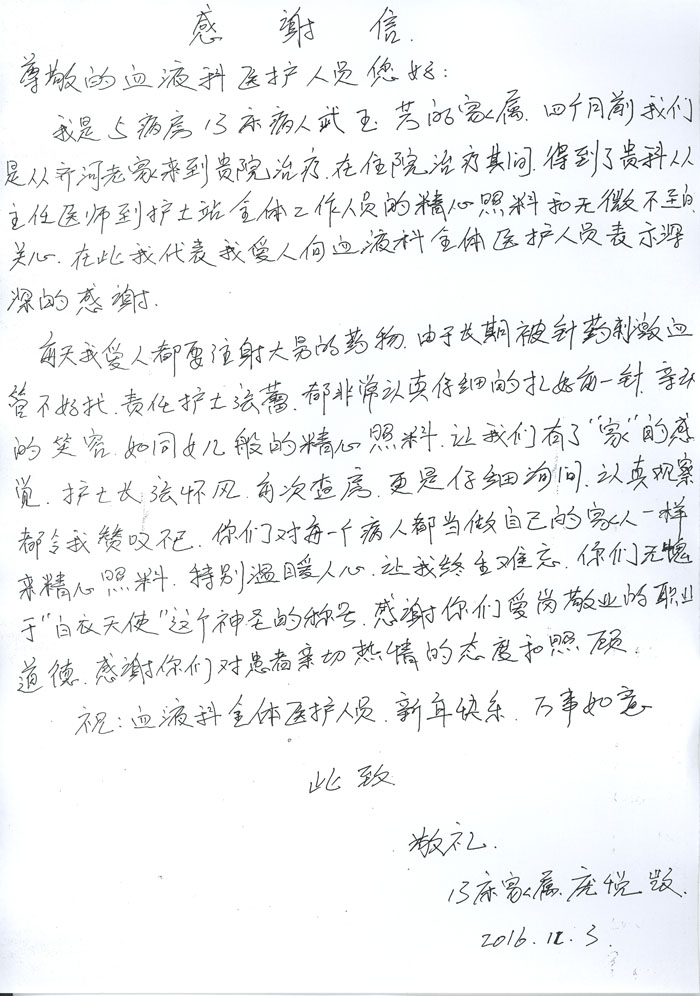 感谢信.
尊敬的血液科医护人员您好:
我是5病房13床病人武玉芳的家属.四个月前我们
是从齐河老家来到贵院治疗.在住院治疗其间.得到了贵科从
主任医师到护士站全体工作人员的精心照料和无微不至的
关心.在此我代表我爱人向血液科全体医护人员表示深
深的感谢.
每天我爱人都要注射大量的药物.由于长期被针药刺激血
管不好找.责任护士张蕾.都非常认真仔细的扎好每一针.亲切
的笑容.如同女儿般的精心照料.让我们有了"家"的感
觉.护士长张怀风.每次查房.更是仔细询问.认真观察
都令我赞叹不已.你们对每一个病人都当做自己的家人一样
来精心照料.特别温暖人心.让我终生难忘.你们无愧
于"白衣天使"这个神圣的称号.感谢你们爱岗敬业的职业
道德.感谢你们对患者亲切热情的态度和照顾.
祝:血液科全体医护人员.新年快乐.万事如意
此致
敬礼.
13床家属.庞悦
2016.12.3.